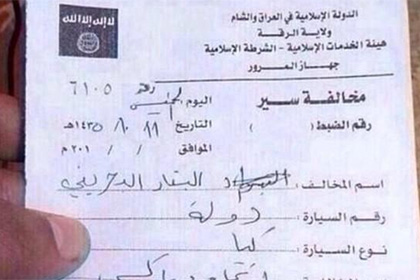 لا إله إلا الله
الدولة الإسلامية في العراق والشام
ولاية الرقة
هيئة الخدمات الإسلامية - الشرطة الإسلامية
جهاز المرور
رقم ٦١٠٥
مخالفة سير
اليوم
رقم الضبط: ( )
التاريخ ١١ / ١٠ / ١٤٣٥هـ
الموافق / / ٢٠١م
اسم المخالف:
رقم السيارة: دولة
نوع السيارة: كيا